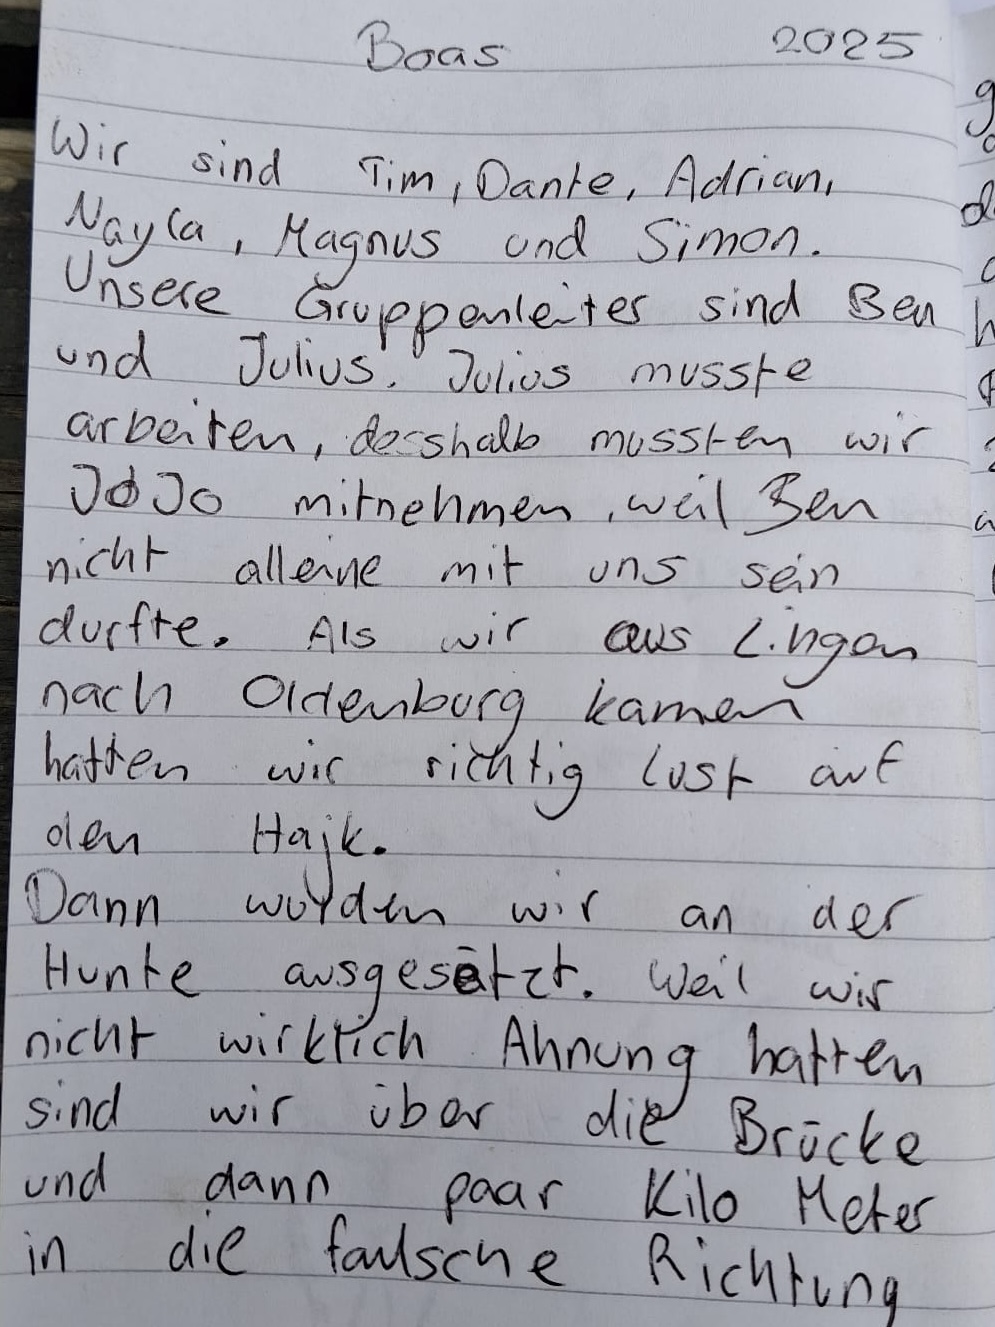 Boas 2025
Wir sind Tim, Dante, Adrian,
Nayla, Magnus und Simon.
Unsere Gruppenleiter sind Ben
und Julius. Julius musste
arbeiten, desshalb mussten wir
JoJo mitnehmen, weil Ben
nicht alleine mit uns sein
durfte. Als wir aus Lingen
nach Oldenburg kamen
hatten wir richtig lust auf
den Hajk.
Dann wurden wir an der
Hunte ausgesetzt. Weil wir
nicht wirklich Ahnung hatten
sind wir über die Brücke
und dann paar Kilo Meter
in die falsche Richtung